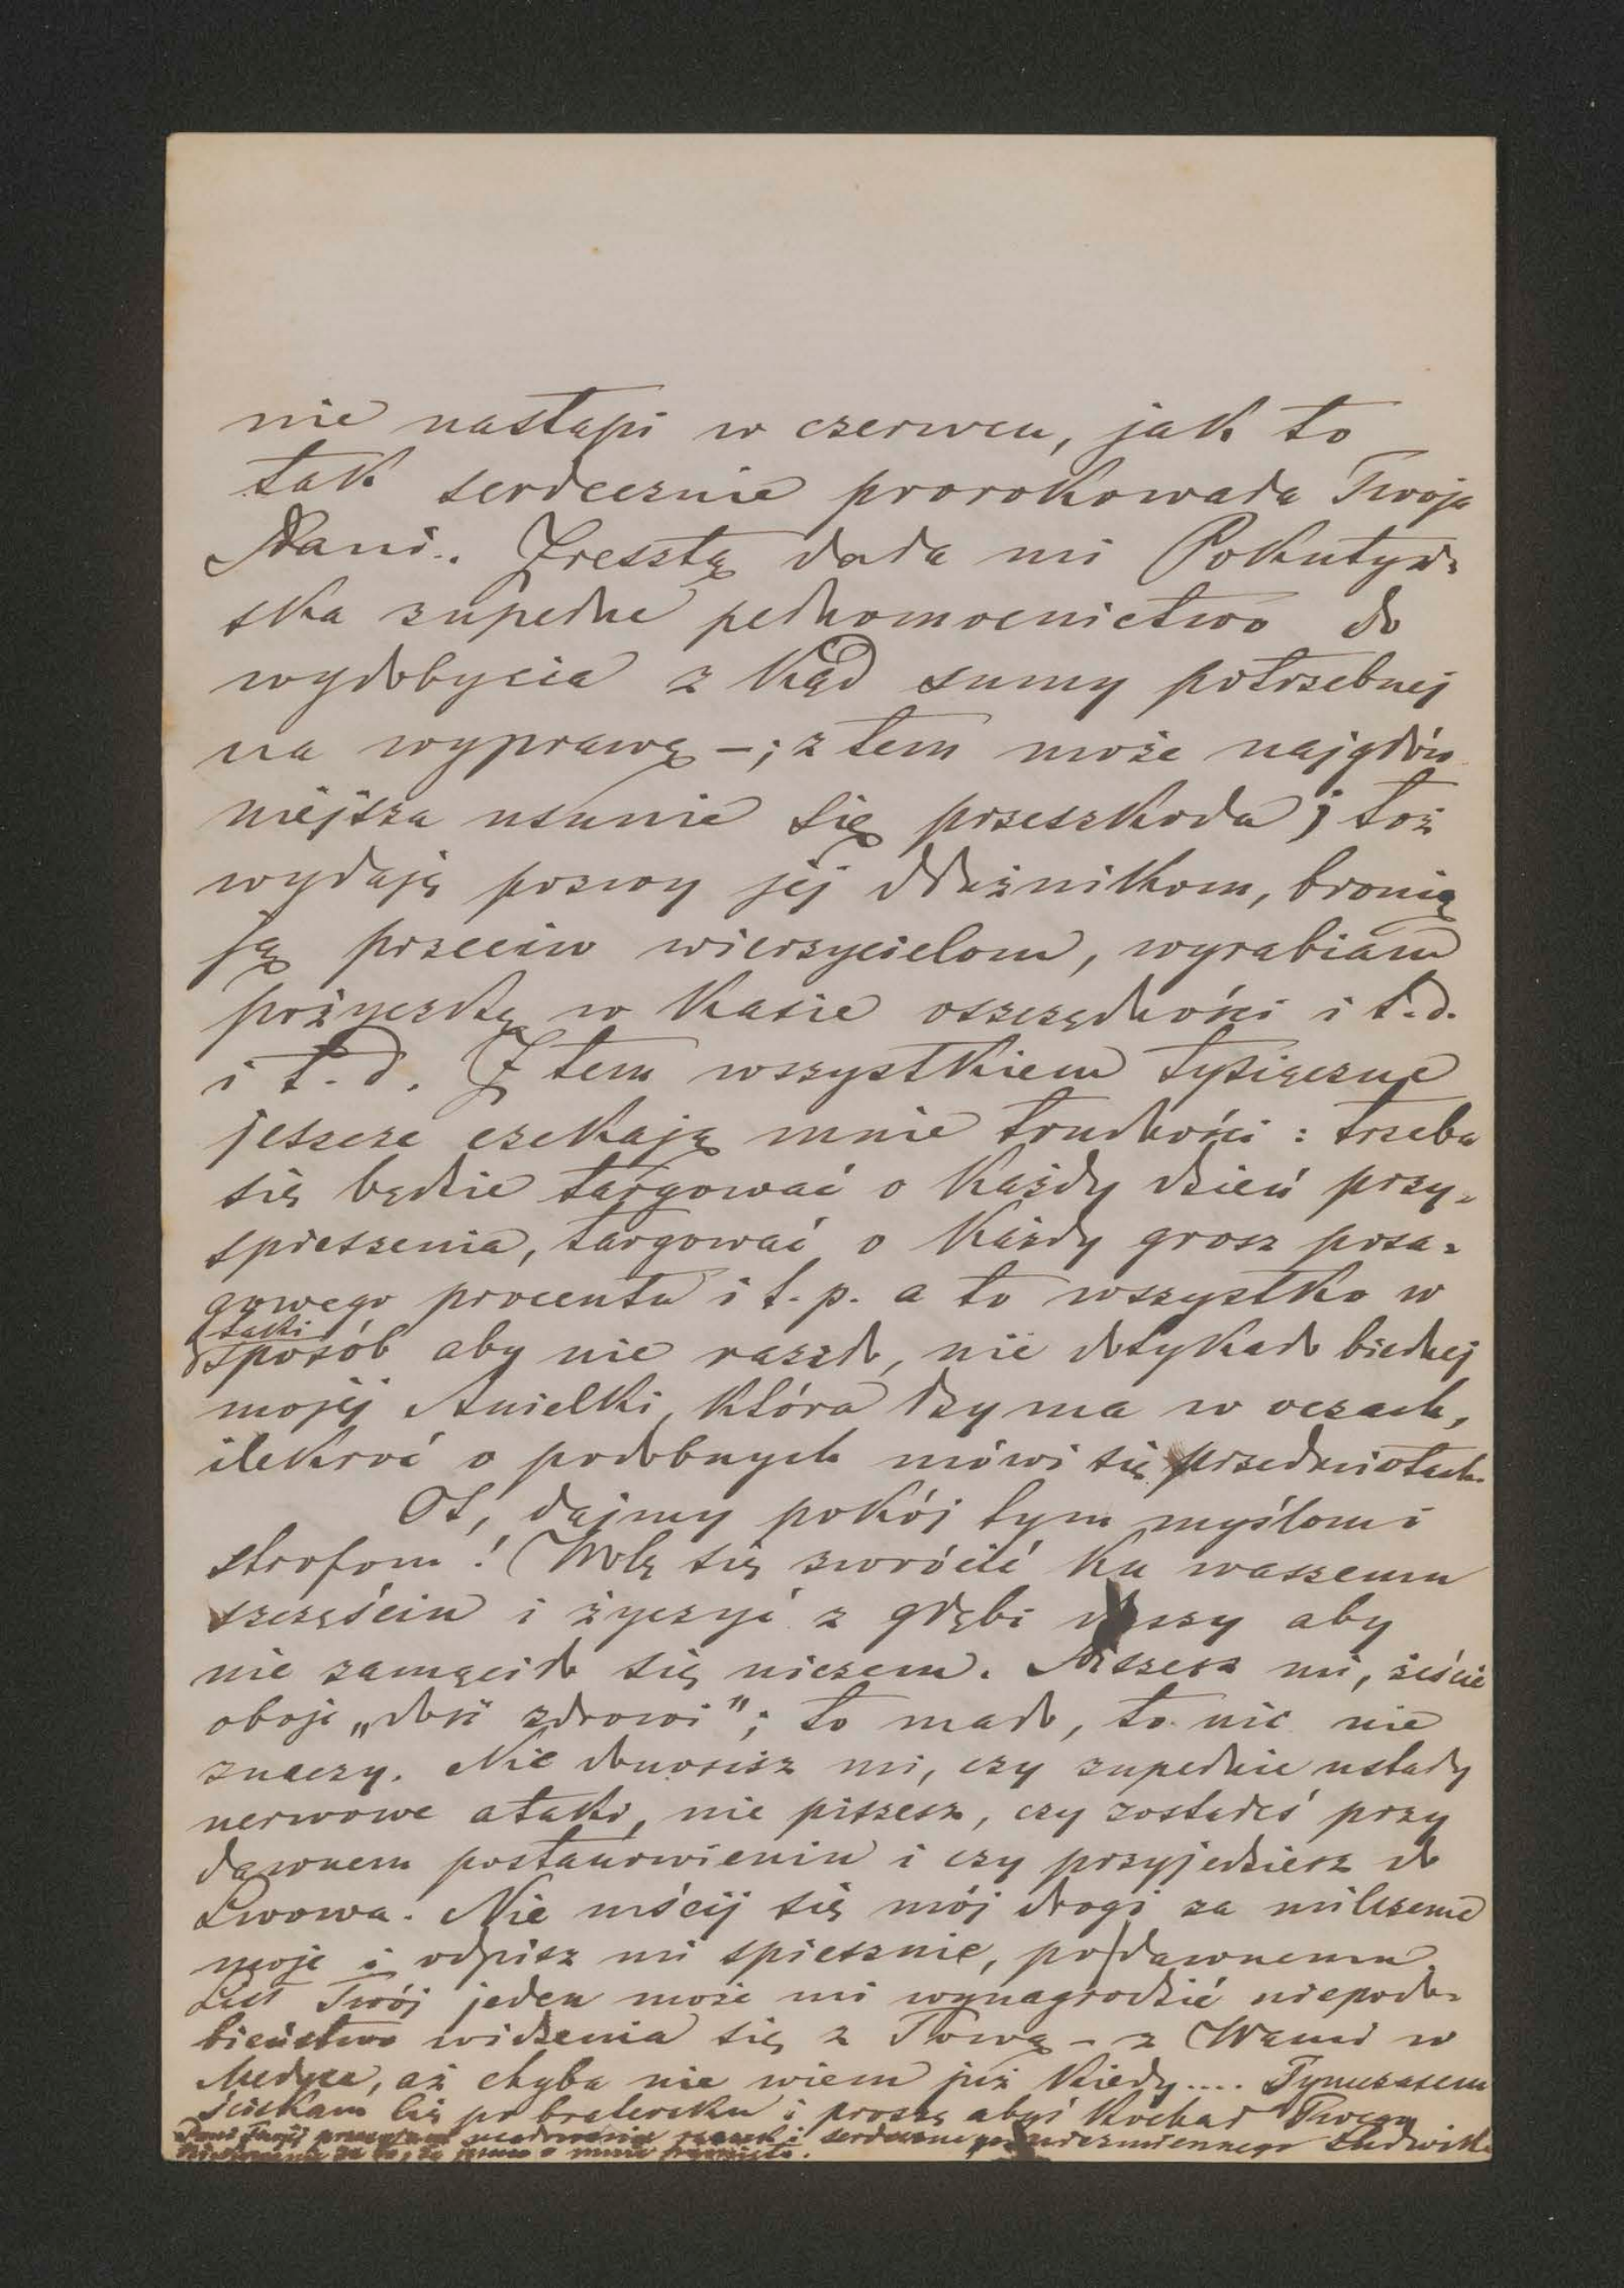 nie nastąpi w czerwcu, jak to
tak serdecznie prorokowała Twoja
Pani.. Zresztą dała mi Pokutyń-
ska zupełne pełnomocnictwo do
wydobycia z kąd sumy potrzebnej
na wyprawę –; z tem może najgłów
niejsza usunie się przeszkoda; toż
wydaję pozwy jej dłużnikom, bronię
ją przeciw wierzycielom, wyrabiam
pożyczkę w kasie oszczędności i t.d.
i t.d. Z tem wszystkiem tysiączne
jeszcze czekają mnie trudności: trzeba
się będzie targować o każdy dzień przy-
spieszenia, targować o każdy grosz posa-
gowego procentu i t.p. a to wszystko w
taki
sposób aby nie raziło, nie dotykało biednej
mojej Anielki, która łzy ma w oczach,
ilekroć o podobnych mówi się przedmiotach.
Ot, dajmy pokój tym myślom i
strofom! Wolę się zwrócić ku waszemu
szczęściu i życzyć z głębi duszy aby
nie zamąciło się niczem. Piszesz mi, żeście
oboje „dość zdrowi"; to mało, to nic nie
znaczy. Nie donosisz mi, czy zupełnie ustały
nerwowe ataki, nie piszesz, czy zostałeś przy
dawnem postanowieniu i czy przyjedziesz do
Lwowa. Nie mścij się mój drogi za milczenie
moje i odpisz mi spiesznie, po dawnemu.
List Twój jeden może mi wynagrodzić niepodo-
bieństwo widzenia się z Tobą – z Wami w
Medyce, aż chyba nie wiem już kiedy.... Tymczasem
ściskam Cię po bratersku i proszę abyś kochał Twego
niezmiennego Ludwika
Pani Twojej ucałowania rączek i serdeczne
za to, że o mnie pamięta.